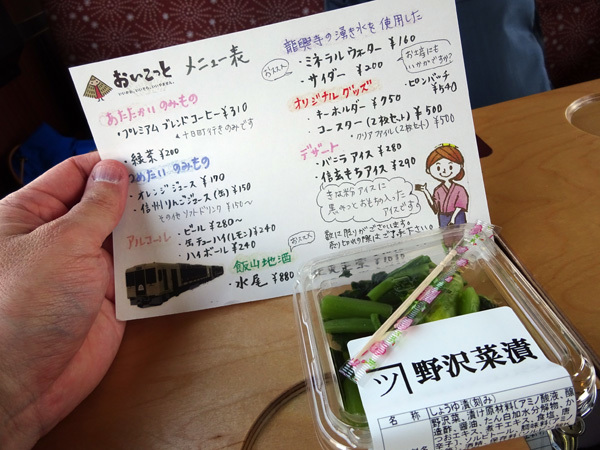 おいこっと メニュー表
あたたかいのみもの
・プレミアムブレンドコーヒー ¥310
↑十日町行きのみです
・緑茶 ¥200
つめたいのみもの
・オレンジジュース ¥170
・信州りんごジュース(缶) ¥150
その他ソフトドリンク ¥150~
アルコール
・ビール ¥280~
・缶チューハイ(レモン) ¥240
・ハイボール ¥240
おススメ
飯山地酒
・水尾 ¥880
龍興寺の湧き水を使用した
おススメ
・ミネラルウォーター ¥160
・サイダー ¥200
お土産にも
いかがですか?
オリジナルグッズ
・ピンバッチ
¥540
・キーホルダー ¥750
・コースター(2枚セット) ¥500
・クリアファイル(2枚セット) ¥500
デザート
・バニラアイス ¥280
・信玄もちアイス ¥290
きな粉アイスに
黒みつとおもちが入った
アイスです。
数に限りがございます。
売り切れの際はご了承下さい。
野沢菜漬
名称 しょうゆ漬(刻み)
野沢菜、漬け原材料(アミノ酸液、醸
造酢、醤油、たん白加水分解物、か
つおエキス、煮干エキス、食塩、唐
辛子)、ソルビトール、調味料(アミノ